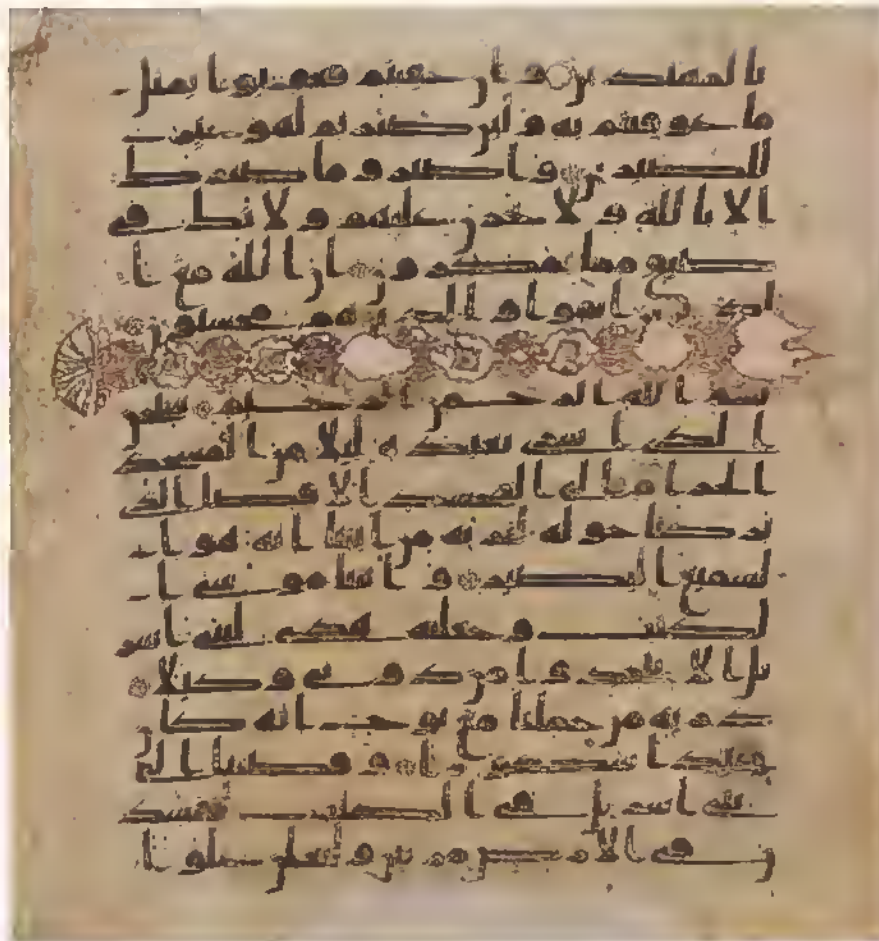 بالمهتدين وان عاقبتم فعاقبوا بمثل
ما عوقبتم به ولئن صبرتم لهو خير
للصبرين واصبر وما صبرك
الا بالله ولا تحزن عليهم ولا تك في
ضيق مما يمكرون ان الله مع ا
لذين اتقوا والذين هم محسنون
بسم الله الرحمن الرحيم سبحن
الذي اسرى بعبده ليلا من المسجد
الحرام الى المسجد الاقصا الذ
ي بركنا حوله لنريه من ايتنا انه هو ا
لسميع البصير واتينا موسى ا
لكتب وجعلنه هدى لبني اسر
يل الا تتخذوا من دوني وكيلا
ذرية من حملنا مع نوح انه كان
عبدا شكورا وقضينا الى
بني اسريل في الكتب لتفسد
ن في الارض مرتين ولتعلن علوا